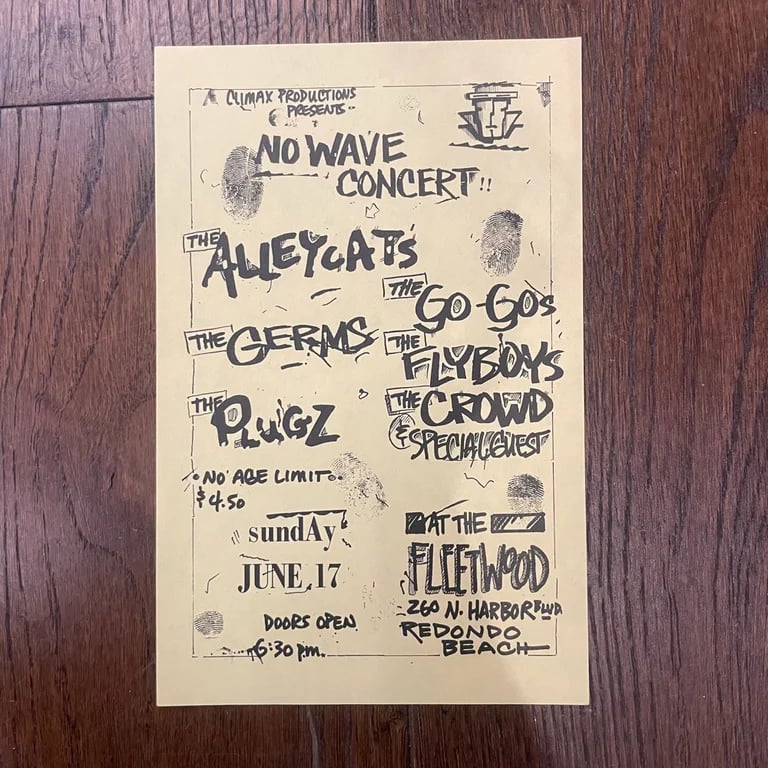 A CLIMAX PRODUCTIONS
PRESENTS..
NO WAVE
CONCERT!!
THE ALLEYCATS
THE GERMS
THE PLUGZ
THE GO-GOs
THE FLYBOYS
THE CROWD
& SPECIAL GUEST
• NO AGE LIMIT •
$4.50
sundAy
JUNE 17
DOORS OPEN
6:30 p.m.
AT THE
FLEETWOOD
260 N. HARBOR BLVD
REDONDO
BEACH